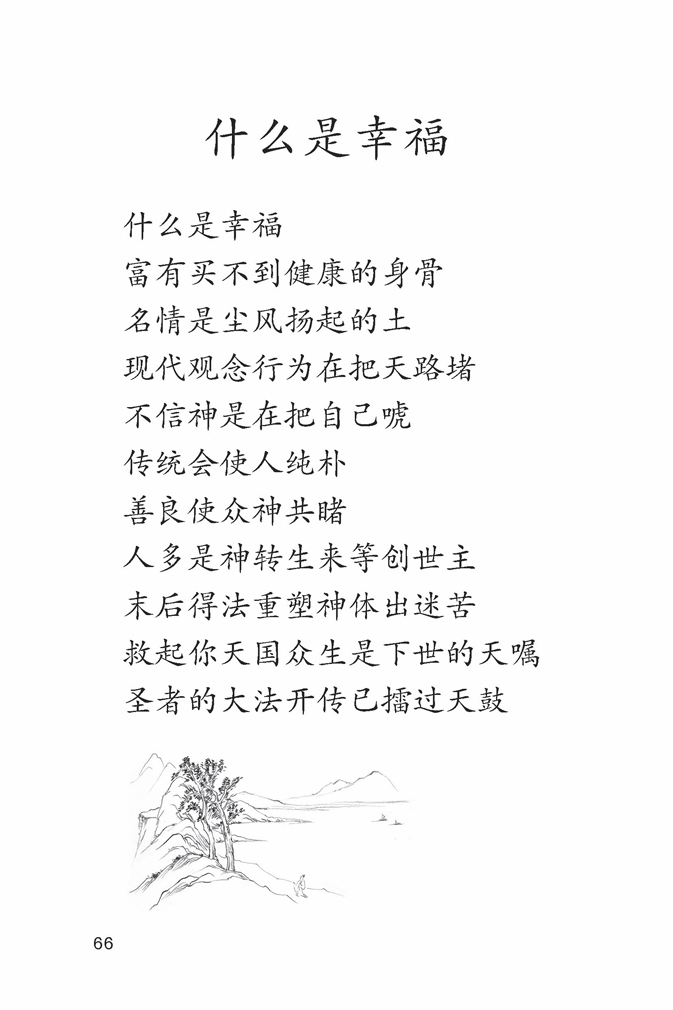 什么是幸福
什么是幸福
富有买不到健康的身骨
名情是尘风扬起的土
现代观念行为在把天路堵
不信神是在把自己唬
传统会使人纯朴
善良使众神共睹
人多是神转生来等创世主
末后得法重塑神体出迷苦
救起你天国众生是下世的天嘱
圣者的大法开传已擂过天鼓
66